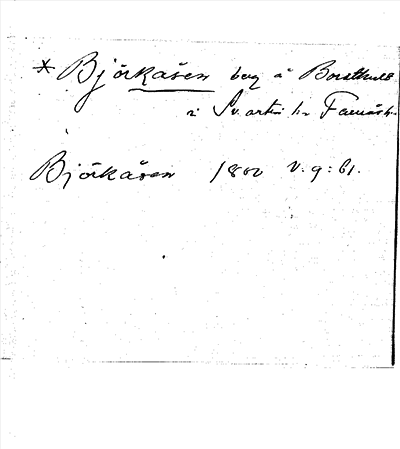 * Björkåsen berg å Borsthult
i Svartrå hr Faurås h.
Björkåsen 1800 V. 9: 61.